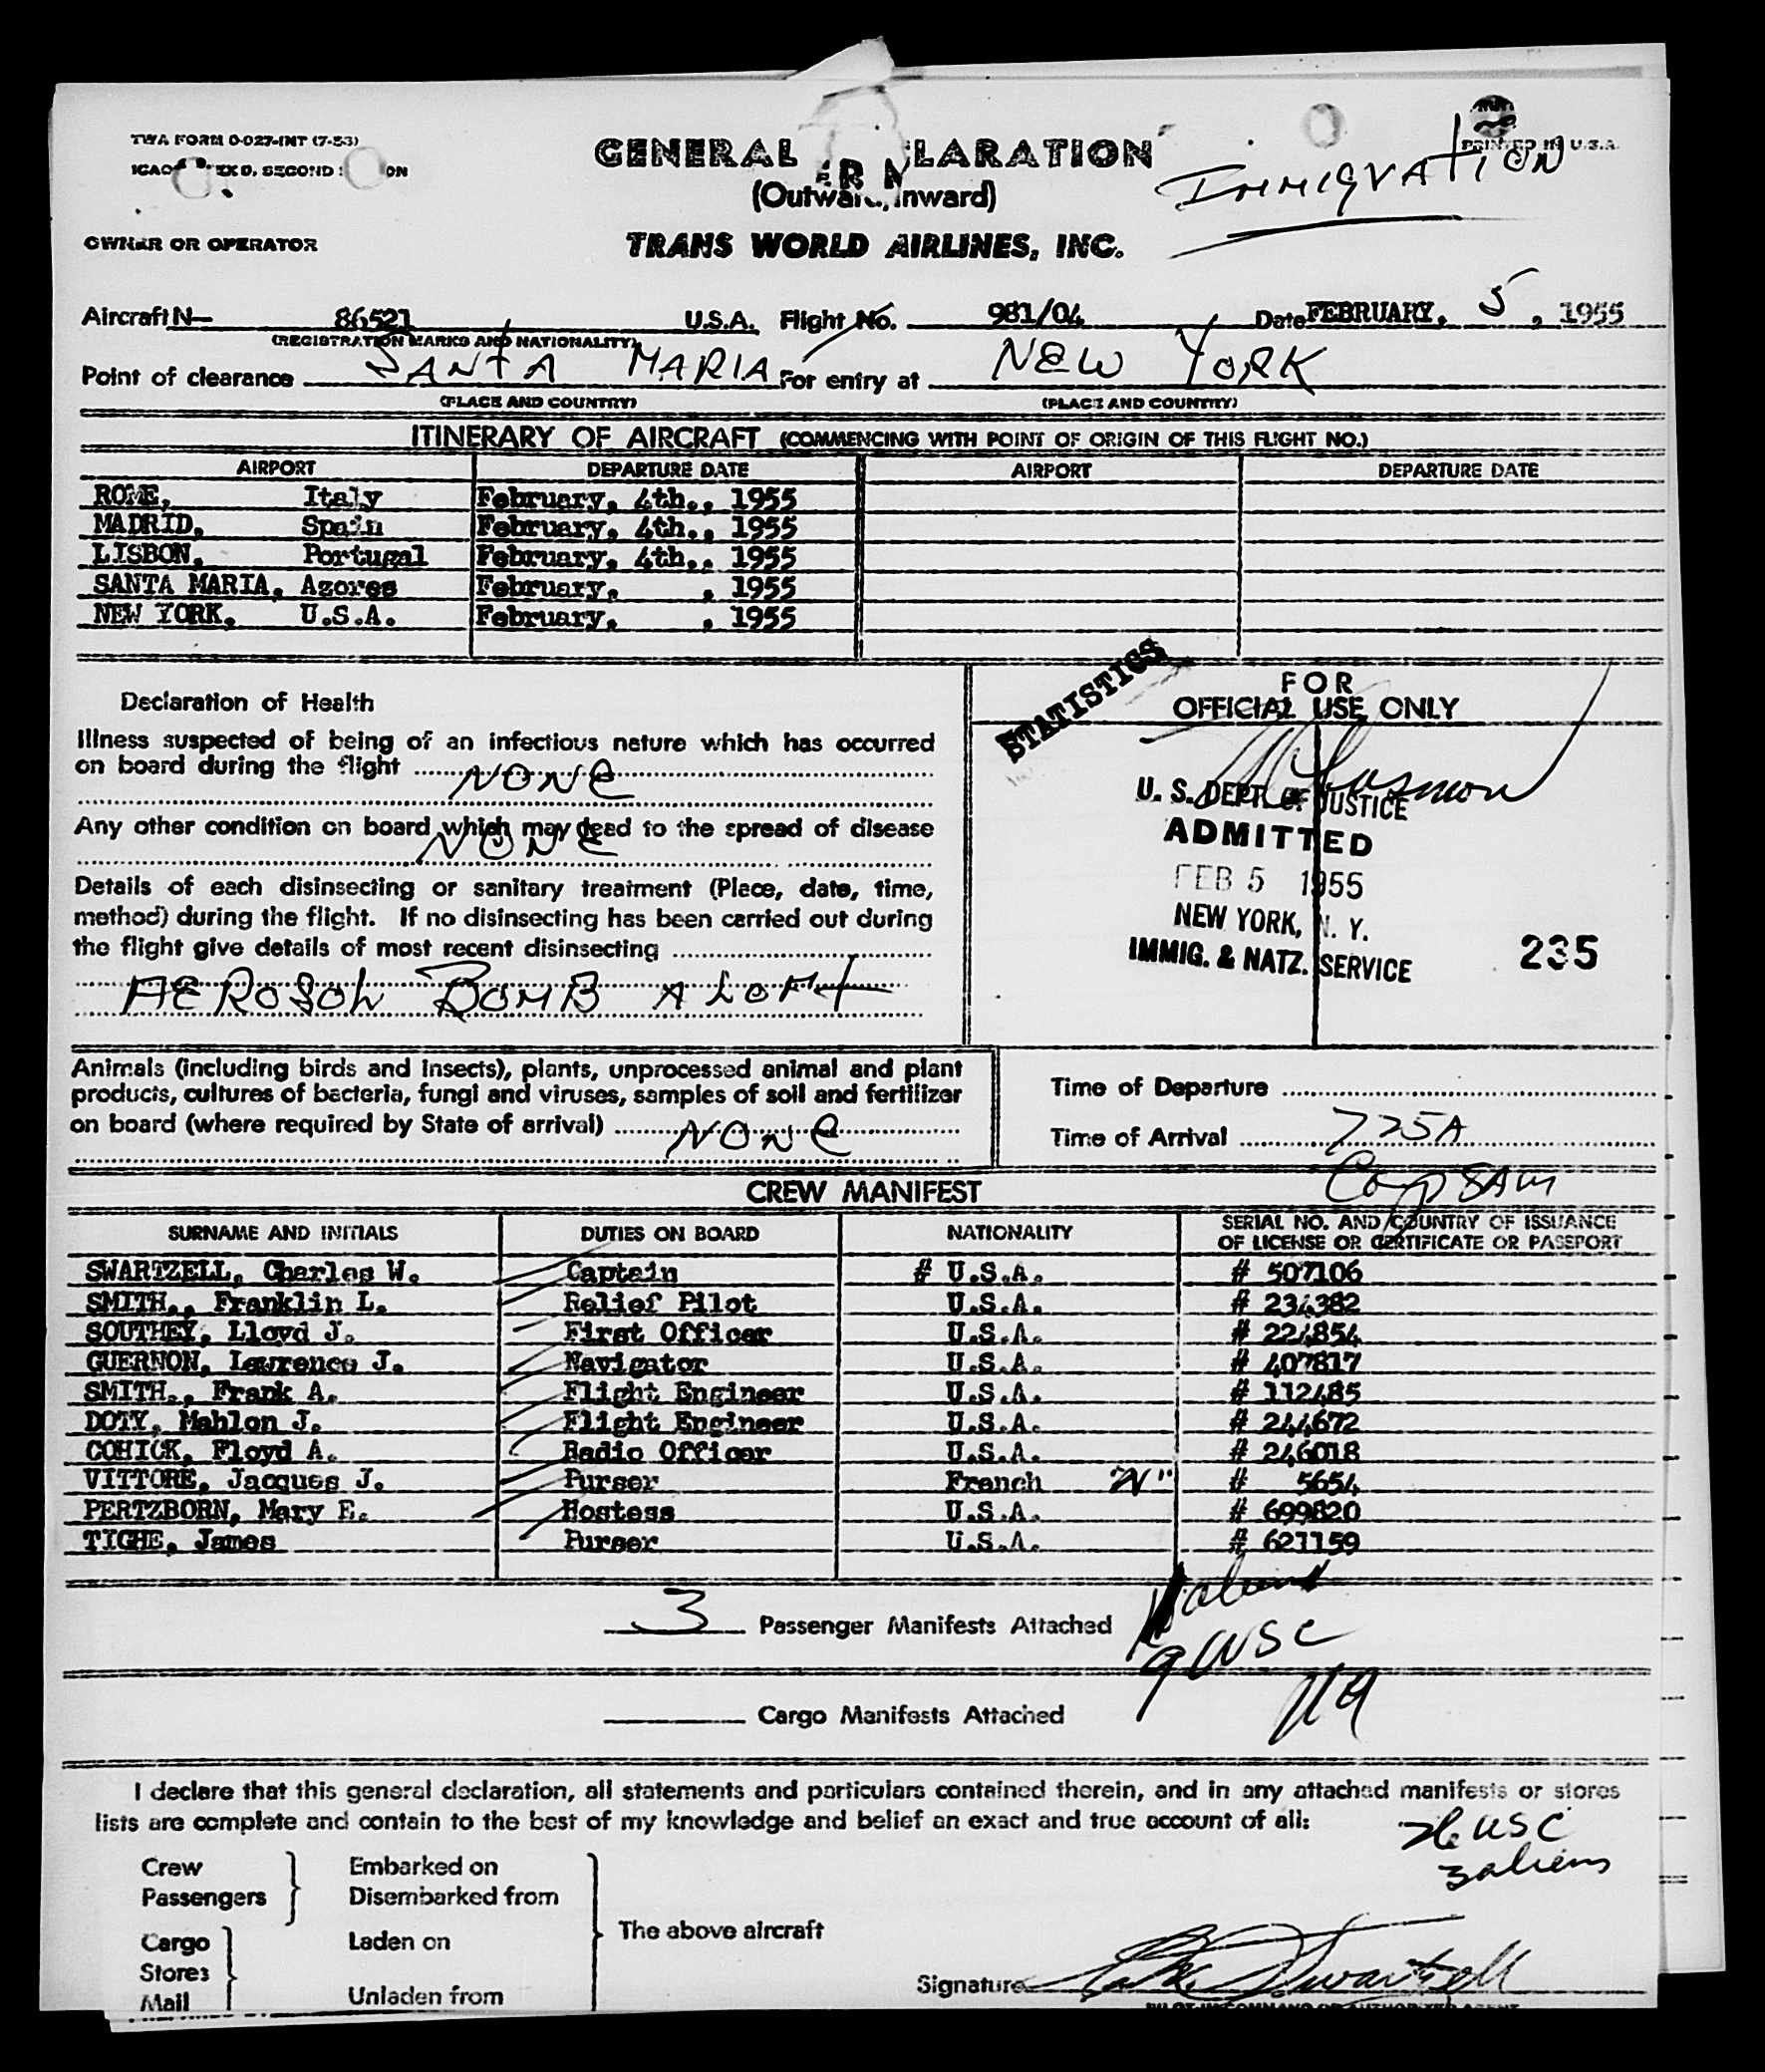 TWA FORM O-027-INT (7-53)
GENERAL LARATION
PRINTED IN U.S.A.
ICAO EX D, SECOND ON
IMMIGRATION
(Outward, Inward)
OWNER OR OPERATOR
TRANS WORLD AIRLINES, INC.
Aircraft N- 86521 U.S.A. Flight No. 981/04 Date FEBRUARY, 5, 1955
(REGISTRATION MARKS AND NATIONALITY)
Point of clearance SANTA MARIA For entry at NEW YORK
(PLACE AND COUNTRY) (PLACE AND COUNTRY)
ITINERARY OF AIRCRAFT (COMMENCING WITH POINT OF ORIGIN OF THIS FLIGHT NO.)
AIRPORT DEPARTURE DATE AIRPORT DEPARTURE DATE
ROME, Italy February, 4th., 1955
MADRID, Spain February, 4th., 1955
LISBON, Portugal February, 4th., 1955
SANTA MARIA, Azores February, , 1955
NEW YORK, U.S.A. February, , 1955
STATISTICS
FOR
OFFICIAL USE ONLY
Declaration of Health
Illness suspected of being of an infectious nature which has occurred
on board during the flight NONE
Any other condition on board which may lead to the spread of disease
NONE
Details of each disinsecting or sanitary treatment (Place, date, time,
method) during the flight. If no disinsecting has been carried out during
the flight give details of most recent disinsecting
AEROSOL BOMB ALOFT
U. S. DEPT. OF JUSTICE
ADMITTED
FEB 5 1955
NEW YORK, N. Y.
IMMIG. & NATZ. SERVICE
235
Animals (including birds and insects), plants, unprocessed animal and plant
products, cultures of bacteria, fungi and viruses, samples of soil and fertilizer
on board (where required by State of arrival) NONE
Time of Departure
Time of Arrival 725A
CREW MANIFEST
SURNAME AND INITIALS DUTIES ON BOARD NATIONALITY SERIAL NO. AND COUNTRY OF ISSUANCE
OF LICENSE OR CERTIFICATE OR PASSPORT
SWARTZELL, Charles W. Captain # U.S.A. # 507106
SMITH., Franklin L. Relief Pilot U.S.A. # 234382
SOUTHEY, Lloyd J. First Officer U.S.A. # 224854
GUERNON, Lawrence J. Navigator U.S.A. # 407817
SMITH., Frank A. Flight Engineer U.S.A. # 112485
DOTY, Mahlon J. Flight Engineer U.S.A. # 244672
COHICK, Floyd A. Radio Officer U.S.A. # 246018
VITTORE, Jacques J. Purser French "N" # 5654
PERTZBORN, Mary E. Hostess U.S.A. # 699820
TIGHE, James Purser U.S.A. # 621159
3 Passenger Manifests Attached
9 USC
Cargo Manifests Attached
I declare that this general declaration, all statements and particulars contained therein, and in any attached manifests or stores
lists are complete and contain to the best of my knowledge and belief an exact and true account of all:
USC
3 aliens
Crew
Passengers
Embarked on
Disembarked from
Cargo
Stores
Mail
Laden on
Unladen from
The above aircraft
Signature